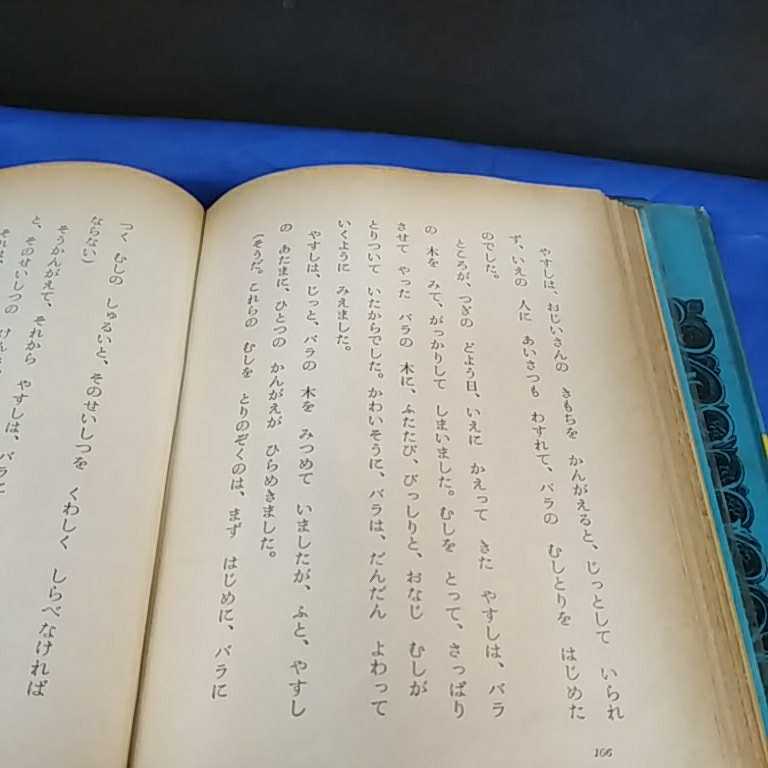 やすしは、おじいさんの きもちを かんがえると、じっとして いられ
ず、いえの 人に あいさつも わすれて、バラの むしとりを はじめた
のでした。
ところが、つぎの どよう日、いえに かえって きた やすしは、バラ
の 木を みて、がっかりして しまいました。むしを とって、さっぱり
させて やった バラの 木に、ふたたび、びっしりと、おなじ むしが
とりついて いたからでした。かわいそうに、バラは、だんだん よわって
いくように みえました。
やすしは、じっと、バラの 木を みつめて いましたが、ふと、やすし
の あたまに、ひとつの かんがえが ひらめきました。
(そうだ。これらの むしを とりのぞくのは、まず はじめに、バラに
つく むしの しゅるいと、そのせいしつを くわしく しらべなければ
ならない)
そうかんがえて、それから やすしは、バラに
と、そのせいしつの
それは、
166